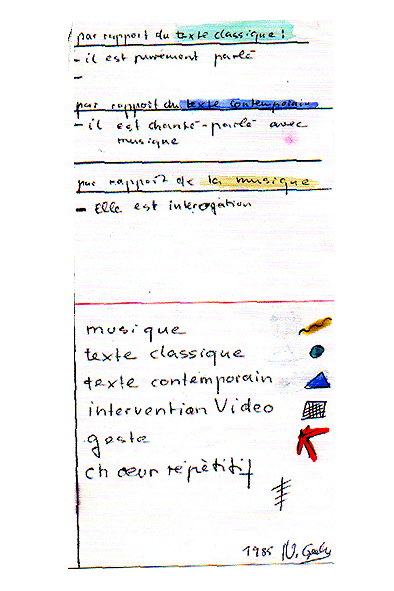 par rapport du texte classique :
- il est purement parlé
-
par rapport du texte contemporain
- il est chanté-parlé avec
musique
par rapport de la musique
- Elle est interogation
musique
texte classique
texte contemporain
intervention Video
geste
chœur répètitif
1985